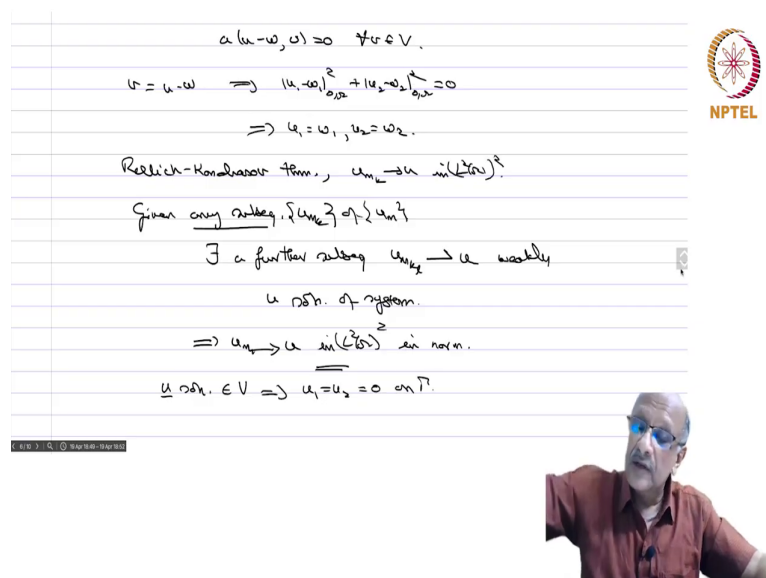 a(u-w,v)=0 ∀v∈V.
v=u-w ⟹ |u₁-w₁|²₀,Ω + |u₂-w₂|²₀,Ω = 0
⟹ u₁=w₁, u₂=w₂.
Rellich-Kondrasov thm., u_{m_k}→u in (L²(Ω))².
Given any subseq. {u_{m_k}} of {u_m}
∃ a further subseq u_{m_{k_l}} ⇀ u weakly
u soln. of system.
⟹ u_m→u in (L²(Ω))² in norm.
u soln. ∈V ⟹ u₁=u₂=0 on Γ.
NPTEL
6/10
19 Apr 18:49 - 19 Apr 18:52